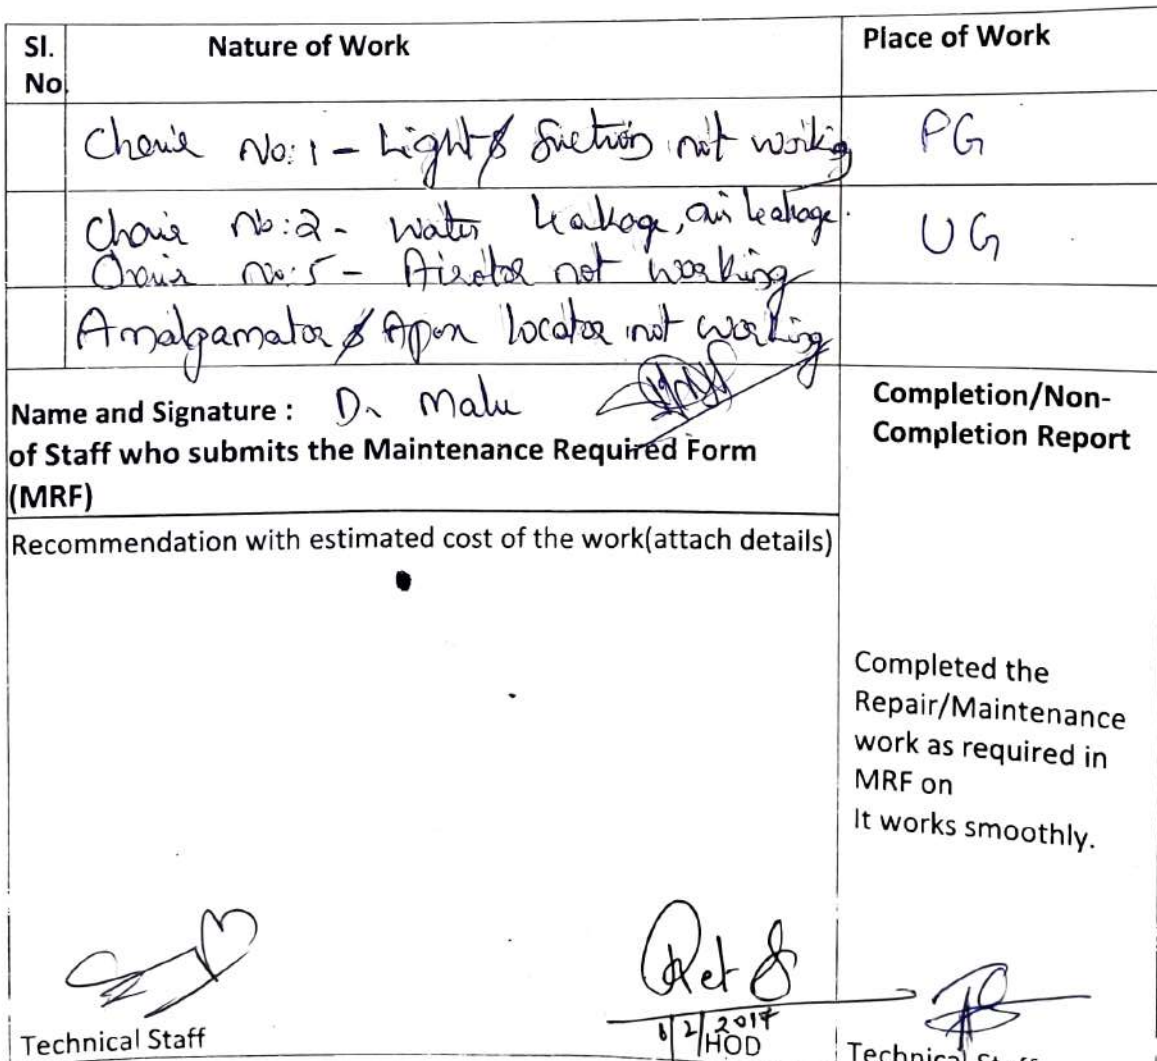 Sl. No Nature of Work Place of Work
Chair No: 1 - Light & Suction not working PG
Chair No: 2 - Water leakage, air leakage. UG
Chair No: 5 - Airotor not working
Amalgamator & Apex locator not working
Name and Signature : Dr Malu
of Staff who submits the Maintenance Required Form
(MRF)
Completion/Non-
Completion Report
Recommendation with estimated cost of the work(attach details)
Completed the
Repair/Maintenance
work as required in
MRF on
It works smoothly.
2/2017
Technical Staff HOD Technical Staff